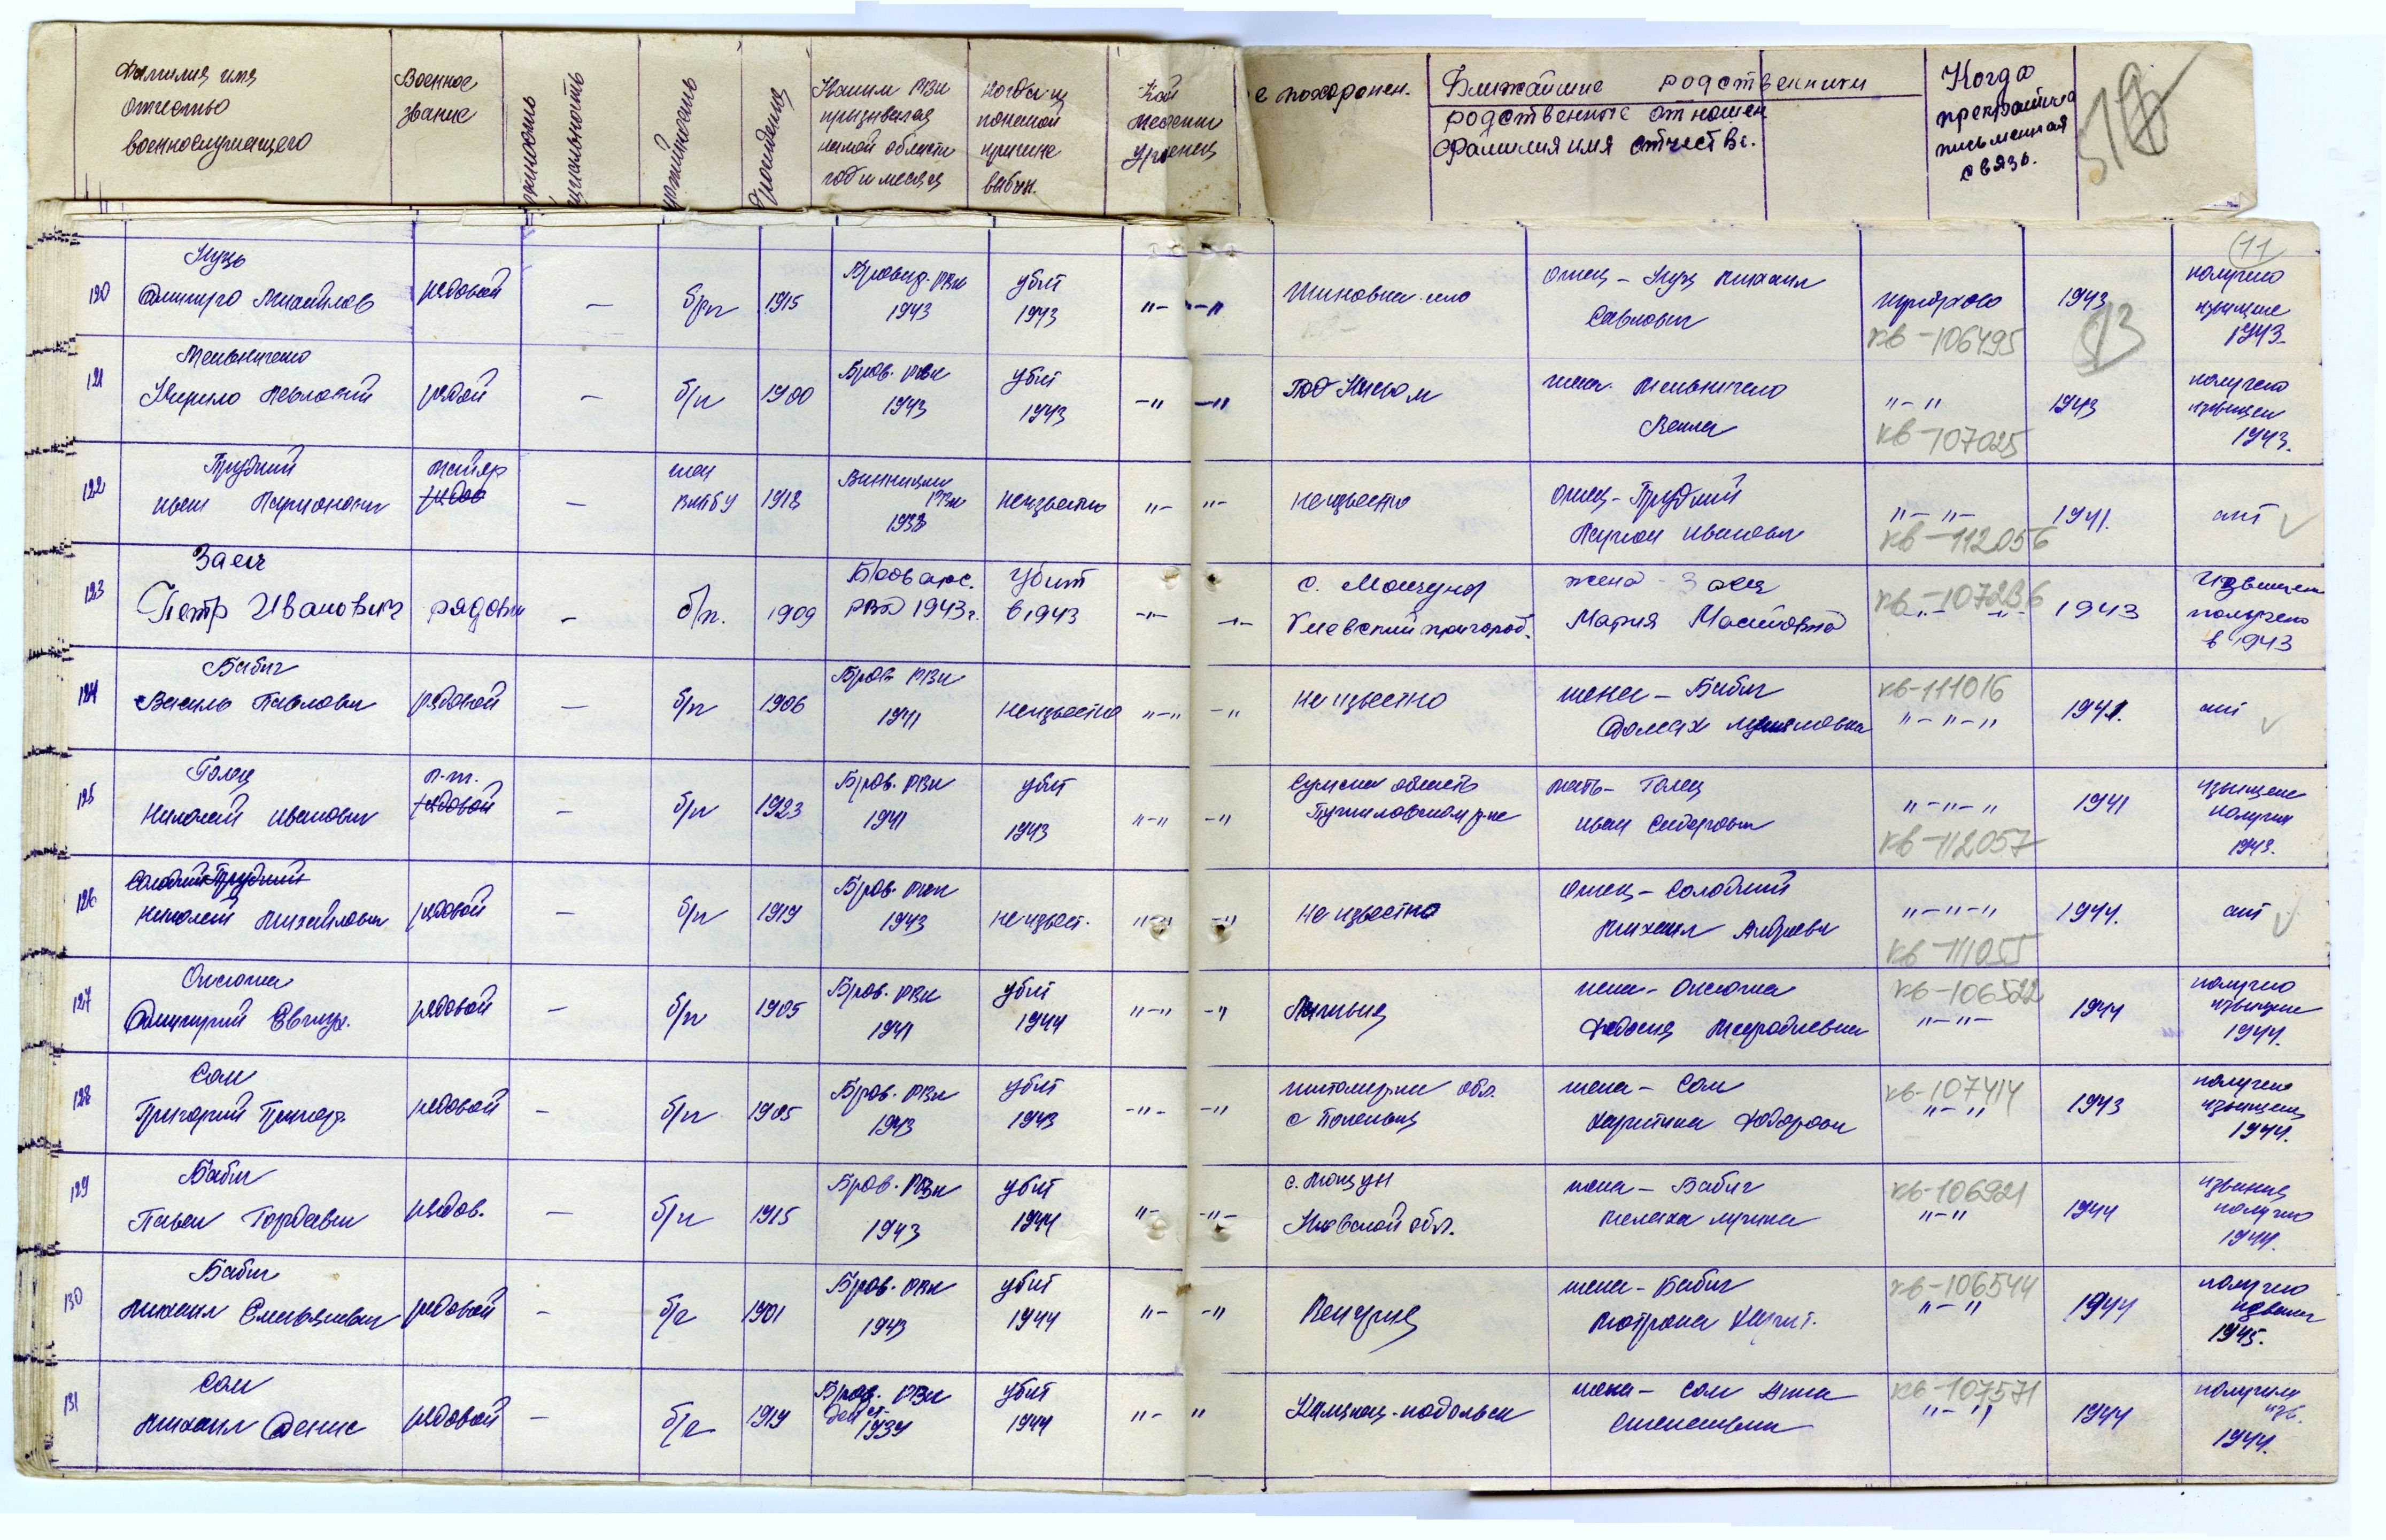 Фамилия имя
отчество
военнослужащего
Военное
звание
Каким РВК
призывался
какой области
год и месяц
когда и
по какой
причине
выбыл.
похоронен.
Ближайшие родственники
родственные отношен
Фамилия имя отчество.
Когда
прекратила
письменная
связь.
11
120
Куць
Дмитро Михайлов
рядовой
—
б/п
1915
Бровар. РВК
1943
убит
1943
"—
—"
село
отец — Куц Михаил
Савлович
кв-106495
1943
13
получено
извещение
1943
121
Мельниченко
Кирило Павлович
рядовой
—
б/п
1900
Бров. РВК
1943
убит
1943
—"
—"
Под Киевом
жена. Мельниченко
Векла
"—"
кв-107025
1943
получено
извещен
1943.
122
Прудкий
Иван Парионович
майор
рядов
—
член
ВКПБУ
1913
Винницким
РВК
1933
неизвестно
"—
"—
Неизвестно
отец — Прудкий
Иванович
"— "—
кв-112056
1941.
нет
123
Заец
Петр Иванович
рядовой
—
б/п.
1909
Броварс.
РВК 1943г.
Убит
в 1943
—"—
—"—
с. Мощун
Киевский пригород.
жена — Заец
Мария
кв-107236
—"— "—
1943
Извещен
получено
в 1943
124
Бабич
Василь Павлович
рядовой
—
б/п
1906
Бров РВК
1941
неизвестно
"—"
—"
Не известно
жена — Бабич
Домах
кв-111016
"—"—"
1941.
нет
125
Голец
Николай Иванович
рядовой
—
б/п
1923
Бров. РВК
1941
убит
1943
"—"
—"
Сумская область
р-не
мать — Голец
Иван Сидорович
"—"—"
кв-112057
1941
извещение
получил
1943.
126
Солодкий Прудкий
Николай Михайлович
рядовой
—
б/п
1919
Бров. РВК
1943
не извест.
"—"
—"
Не известно
отец — Солодкий
Михаил Андреевич
"—"—"
кв-111055
1944.
нет
127
Оксюта
Дмитрий
рядовой
—
б/п
1905
Бров. РВК
1941
убит
1944
"—"
—"
жена — Оксюта
Федосия
кв-106522
"—"—
1944
получено
извещение
1944.
128
Сом
Григорий
рядовой
—
б/п
1905
Бров. РВК
1943
убит
1943
—"—
—"
Житомирская обл.
с
жена — Сом
Харитина Федоровн
кв-107414
"—"
1943
получено
извещен
1944.
129
Бабич
Павел Гордеевич
рядов.
—
б/п
1915
Бров. РВК
1943
убит
1944
"—
—"—
с. Мощун
Киевской обл.
жена — Бабич
Мелаха
кв-106921
"—"
1944
получено
1944.
130
Бабич
Михаил Емельянович
рядовой
—
б/п
1901
Бров. РВК
1943
убит
1944
"—
—"
Венгрия
жена — Бабич
Мотрона
кв-106544
"—"
1944
получено
1945.
131
Сом
Михаил Денис
рядовой
—
б/п
1919
Бров. РВК
1939
убит
1944
"—
"
Каменец-подольск
жена — Сом Анна
кв-107571
"—"
1944
получили
изв.
1944.